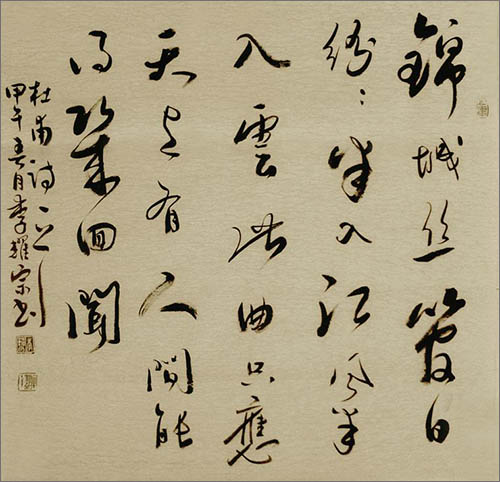 錦城絲管日
紛紛半入江風半
入雲此曲只應
天上有人間能
得幾回聞
杜甫詩一
甲午春月李耀宗书